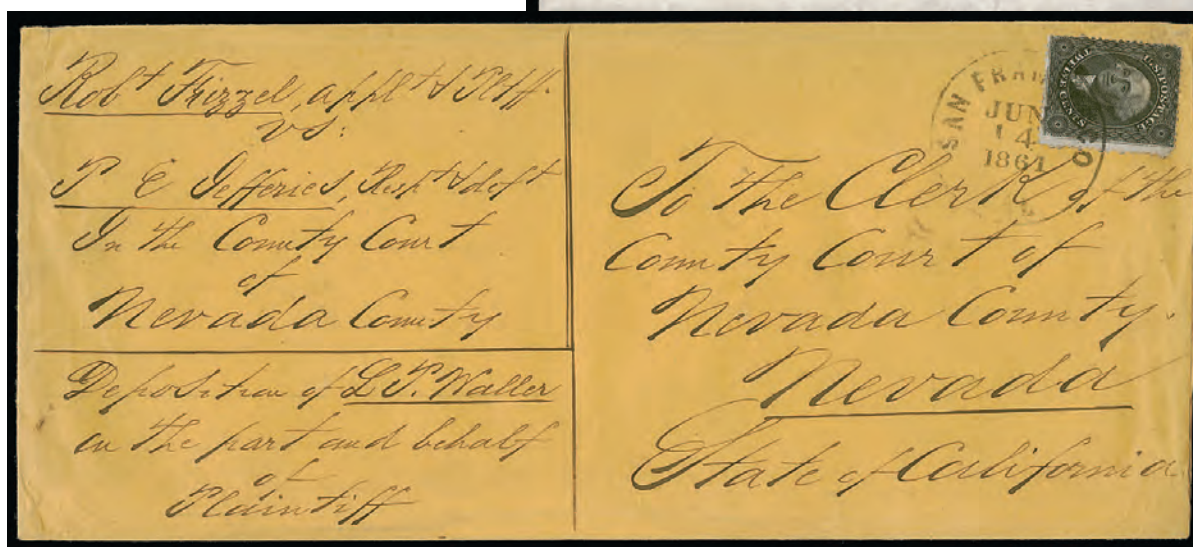 Robt Frizzel, applt & Pltff.
vs:
P E Jefferies, Respt & deft
In the County Court
of
Nevada County
Deposition of L. P. Waller
on the part and behalf
of
Plaintiff
SAN FRAN CO
JUN
14
1861
U.S. POSTAGE
TWELVE CENTS
To the Clerk of the
County Court of
Nevada County.
Nevada
State of California